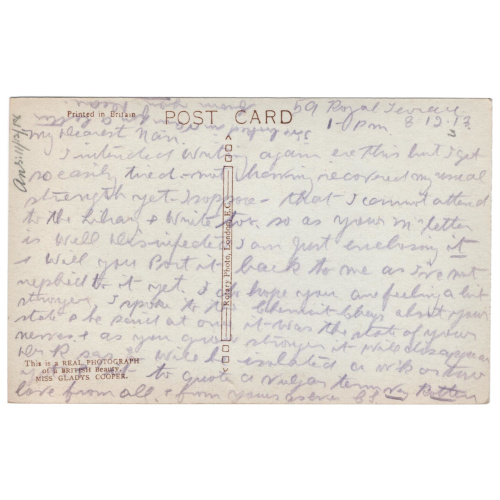 Printed in Britain
POST CARD
59 Royal Terrace
1-0 pm 8.12.13
My Dearest Nan.
I intended writing again ere this but I get
so easily tired - not having recovered my usual
strength yet I suppose - that I cannot attend
to the Library & write too. so as your m letter
is well disinfected I am just enclosing it
& will you Post it back to me as I've not
replied to it yet. I do hope you are feeling a bit
stronger, I spoke to the about your
state & he said at once it was the state of your
nerves & as you grow stronger it will disappear
Dr R. says will be isolated a wk or two
to quote a vulgar term very Rotten
love from all. & from yours as ever
Rotary Photo, London, E.C.
This is a REAL PHOTOGRAPH
of a BRITISH Beauty.
MISS GLADYS COOPER.